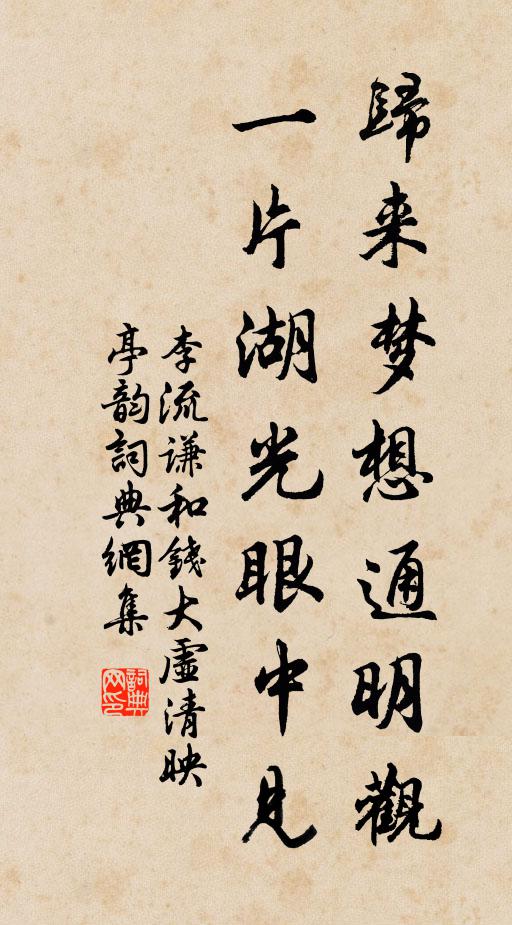 歸来梦想通明觀
一片湖光眼中見
李流谦和錢大虛清映
亭韵詞典網集
詞典网印